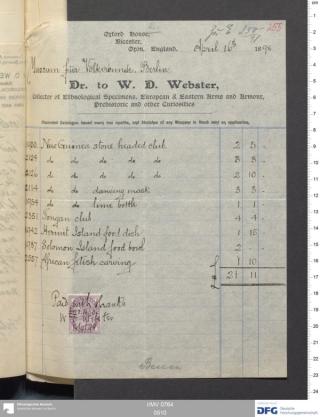 Oxford House,
Bicester,
Oxon, England.
April 16th 1896
Museum für Völkerkunde, Berlin
Dr. to W. D. Webster,
Collector of Ethnological Specimens, European & Eastern Arms and Armour,
Prehistoric and other Curiosities
Illustrated Catalogues issued every two months, and Sketches of any Weapons in Stock sent on application.
New Guinea stone headed club 2 5 -
2129 do do do do 3 3 -
2126 do do do do 2 10 -
2114 do do dancing mask 3 3 -
1954 do do lime bottle 1 1 -
2351 Tongan club 4 4 -
1942 Hermit Island food dish 1 15 -
1787 Solomon Island food bowl 2 - -
2357 African fetish carving 1 10 -
£ 21 11 -
Paid with thanks
W D Webster
HMV 0764
0510
DFG
Deutsche
Forschungsgemeinschaft